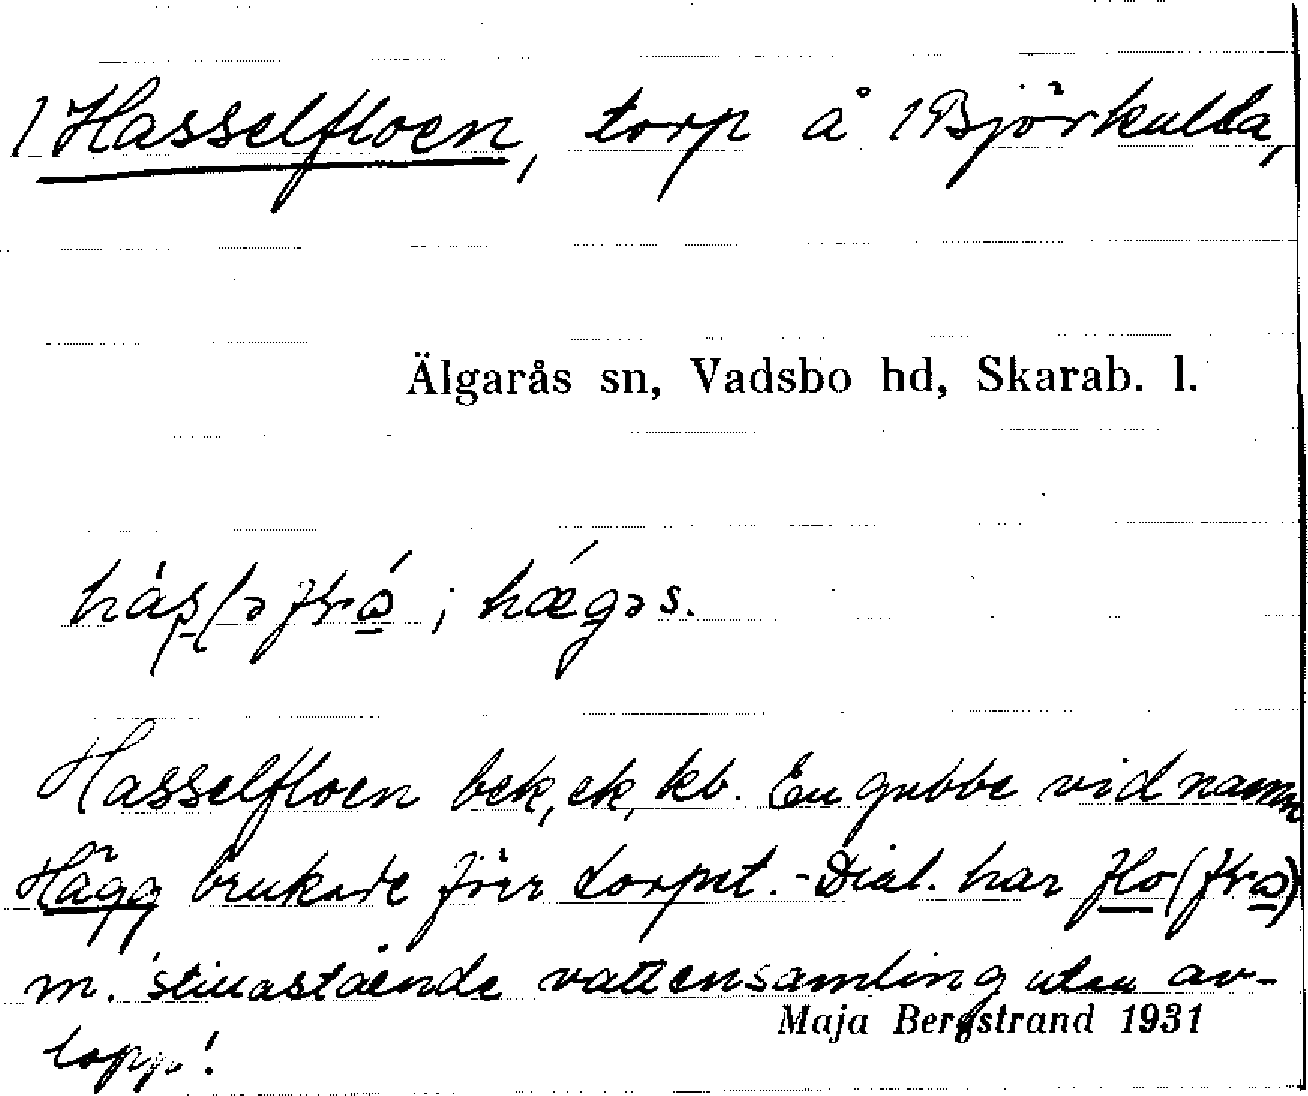 1 Hasselfloen, torp å 1 Björkulla,
Älgarås sn, Vadsbo hd, Skarab. l.
Hasselfloen bek, ek, kb. En gubbe vid namn
Hägg brukade förr torpet. - Dial. har flo
m. 'stillastående vattensamling utan av-
lopp'.
Maja Bergstrand 1931